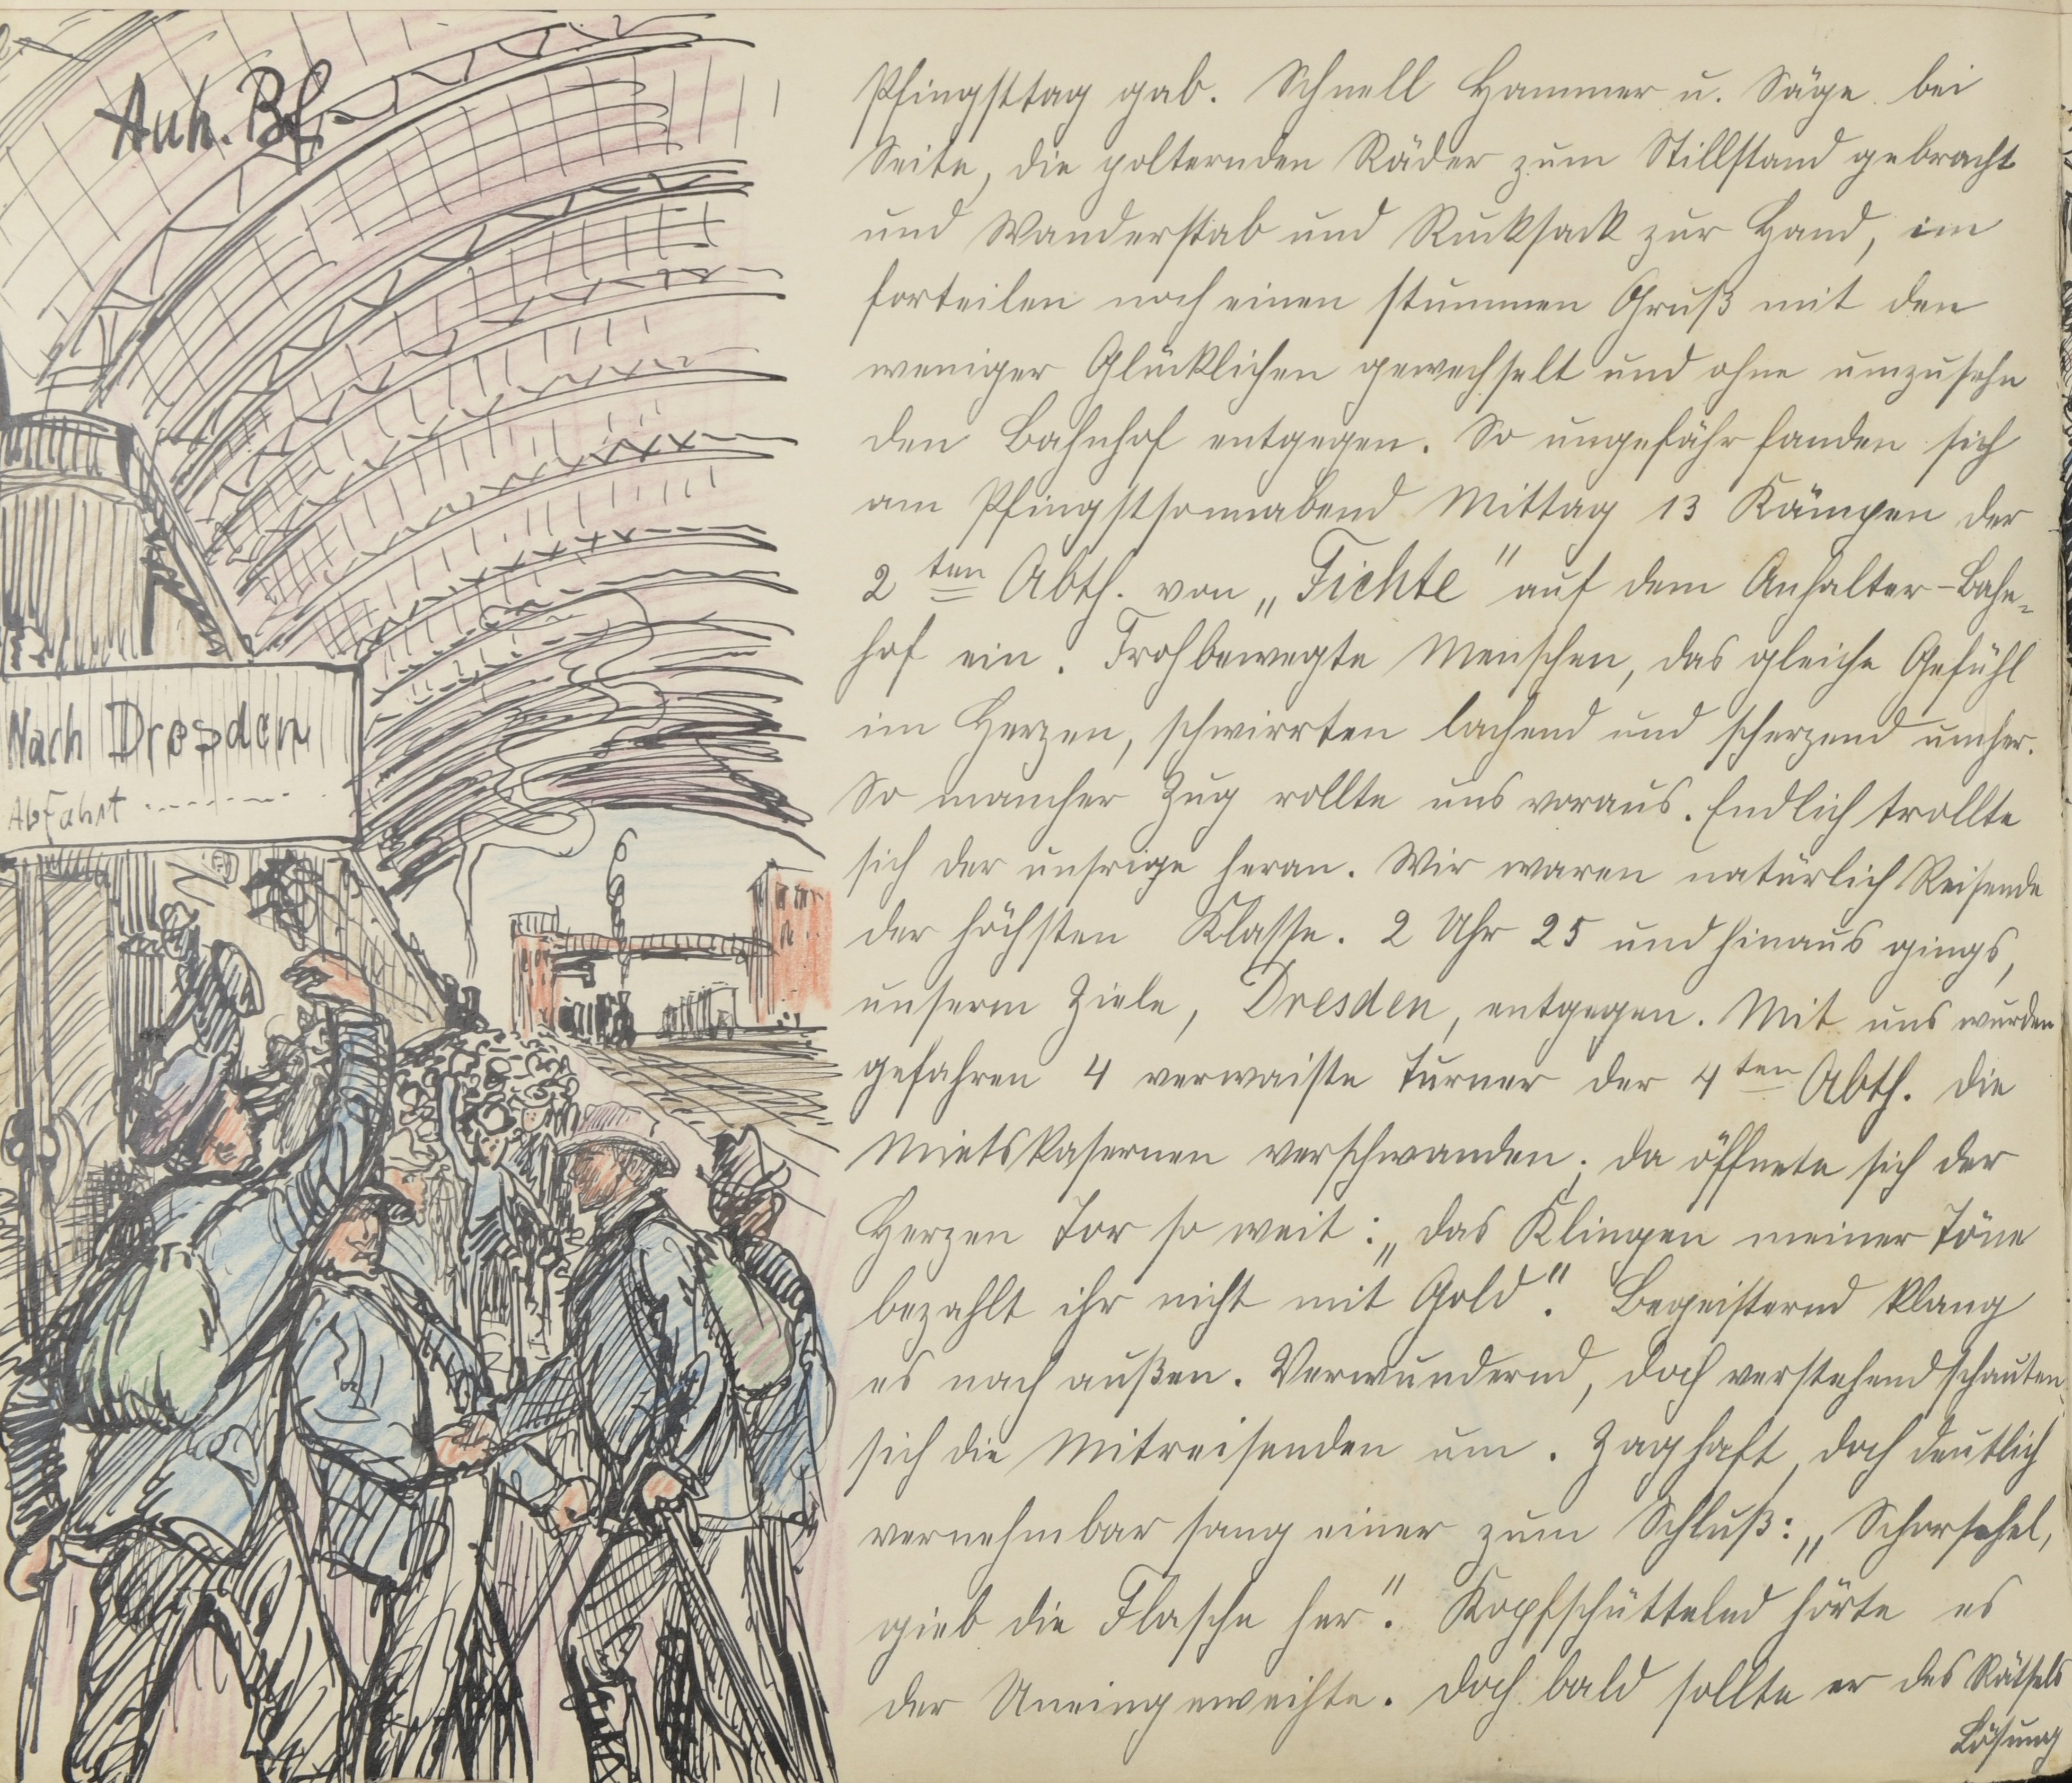 Anh. Bf.
Nach Dresden
Abfahrt
Pfingsttag gab. Schnell Hammer u. Säge bei
Seite, die polternden Räder zum Stillstand gebracht
und Wanderstab und Rucksack zur Hand, im
forteilen noch einen stummen Gruß mit den
weniger Glücklichen gewechselt und ohne umzusehn
den Bahnhof entgegen. So ungefähr fanden sich
am Pfingstsonnabend Mittag 13 Kämpen der
2ten Abth. von „Fichte" auf dem Anhalter-Bahn-
hof ein. Frohbewegte Menschen, das gleiche Gefühl
im Herzen, schwirrten lachend und scherzend umher.
So mancher Zug rollte uns voraus. Endlich trollte
sich der unsrige heran. Wir waren natürlich Reisende
der höchsten Klasse. 2 Uhr 25 und hinaus gings,
unserm Ziele, Dresden, entgegen. Mit uns wurden
gefahren 4 verwaiste Turner der 4ten Abth. Die
Mietskasernen verschwanden. Da öffnete sich der
Herzen Tor so weit: „Das Klingen meiner Töne
bezahlt ihr nicht mit Gold". Begeisternd klang
es nach außen. Verwundernd, doch verstehend schauten
sich die Mitreisenden um. Zaghaft, doch deutlich
vernehmbar sang einer zum Schluß: „Schorschel,
gieb die Flasche her". Kopfschüttelnd hörte es
der Uneingeweihte. Doch bald sollte er des Rätsels
Lösung